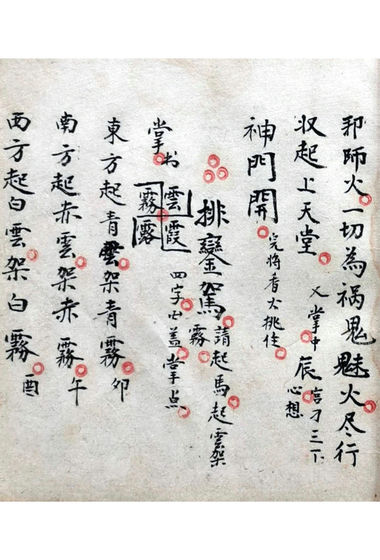 邪師火一切為祸鬼魅火尽行
収起上天堂又掌中辰宫刁三下心想
神門開完将香火挑住
排鑾駕請起馬起雲架霧
掌书雲霞霧露四字盖掌点
東方起青雲架青霧卯
南方起赤雲架赤霧午
西方起白雲架白霧酉